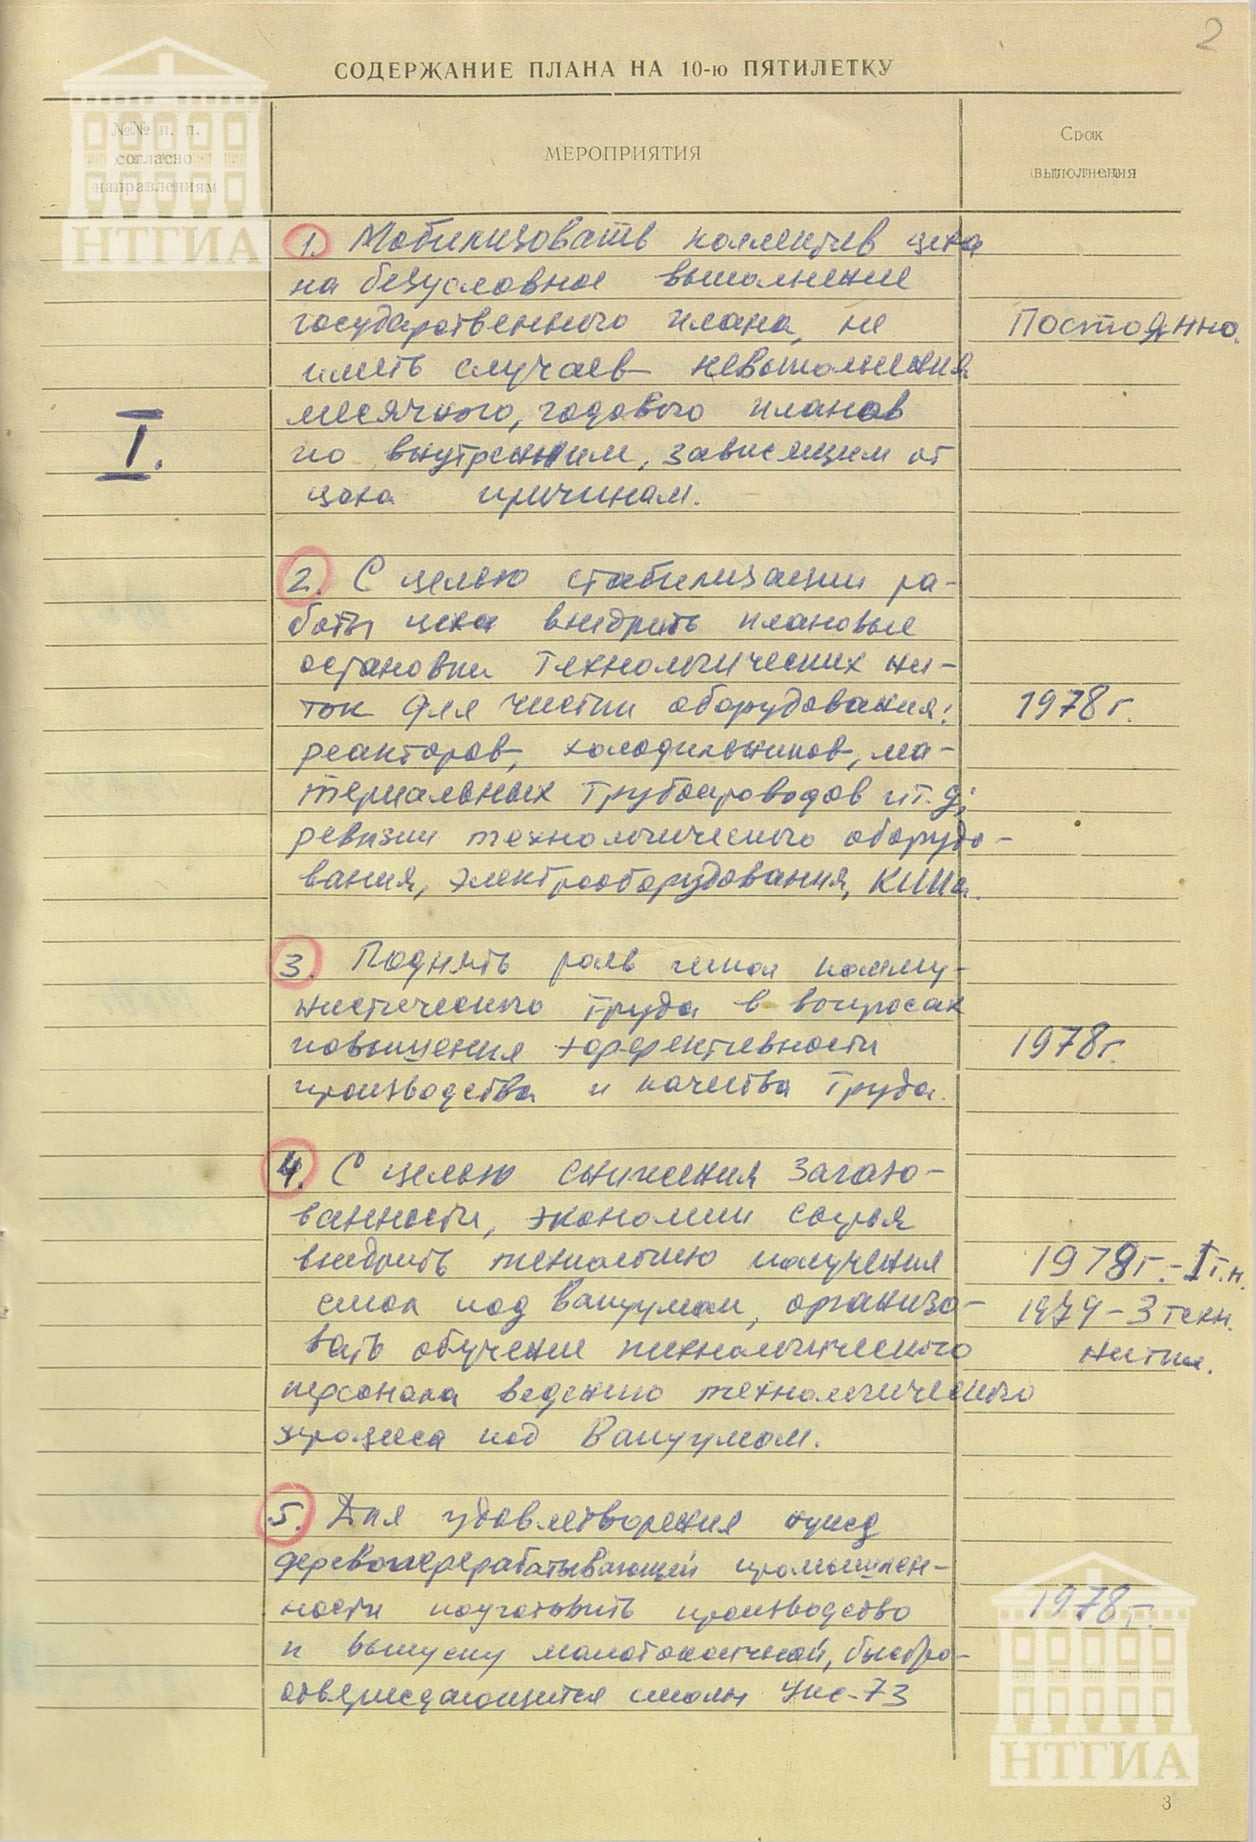 2
СОДЕРЖАНИЕ ПЛАНА НА 10-ю ПЯТИЛЕТКУ
№№ п. п.
согласно
направлениям
МЕРОПРИЯТИЯ
Срок
выполнения
НТГИА
I.
1. Мобилизовать коллектив цеха
на безусловное выполнение
государственного плана, не
иметь случаев невыполнения
месячного, годового планов
по внутренним, зависящим от
цеха причинам.
Постоянно.
2. С целью стабилизации ра-
боты цеха внедрить плановые
остановки технологических ни-
ток для чистки оборудования:
реакторов, холодильников, ма-
териальных трубопроводов и т. д;
ревизии технологического оборудо-
вания, электрооборудования, КИПа.
1978 г.
3. Поднять роль школ комму-
нистического труда в вопросах
повышения эффективности
производства и качества труда.
1978 г.
4. С целью снижения загазо-
ванности, экономии сырья
внедрить технологию получения
смол под вакуумом, организо-
вать обучение технологического
персонала ведению технологического
процесса под вакуумом.
1978 г. - I т.н.
1979 - 3 техн.
нитки.
5. Для удовлетворения нужд
деревоперерабатывающей промышлен-
ности подготовить производство
к выпуску малотоксичной, быстро-
отверждающейся смолы УКС-73
1978 г.
НТГИА
3